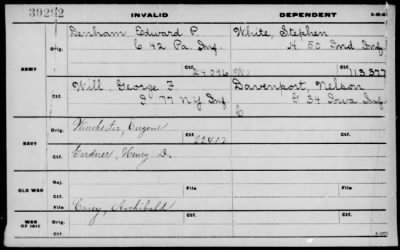 INVALID DEPENDENT
ARMY
Orig. Denham, Edward P. White, Stephen
C 42 Pa. Inf H 50 Ind Inf
Ctf. 24096 Ctf. 113377
Will, George F Davenport, Nelson
I 77 NY Inf G 34 Iowa Inf
NAVY
Orig. Winchester, Eugene
Ctf. 22417
Gardner, Henry D.
OLD WAR
Maj.
Ctf. File File
WAR OF 1812
Orig. Casey, Archibald
Ctf. Ctf.